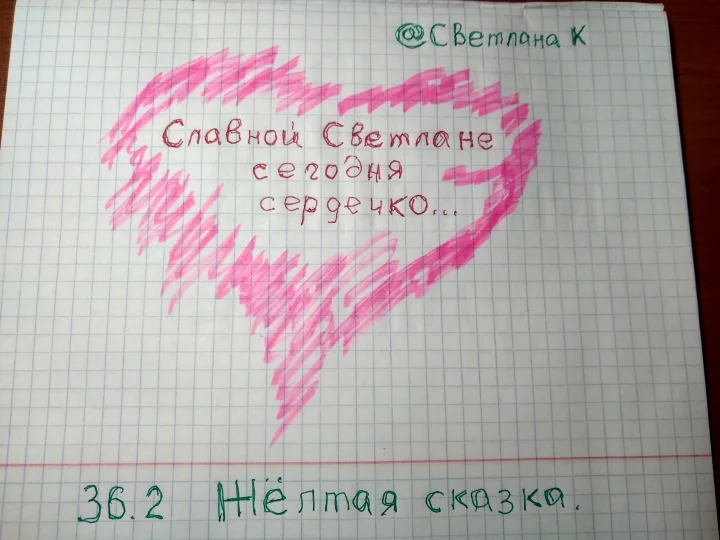 @Светлана К
Славной Светлане
сегодня
сердечко...
36.2 Жёлтая сказка.